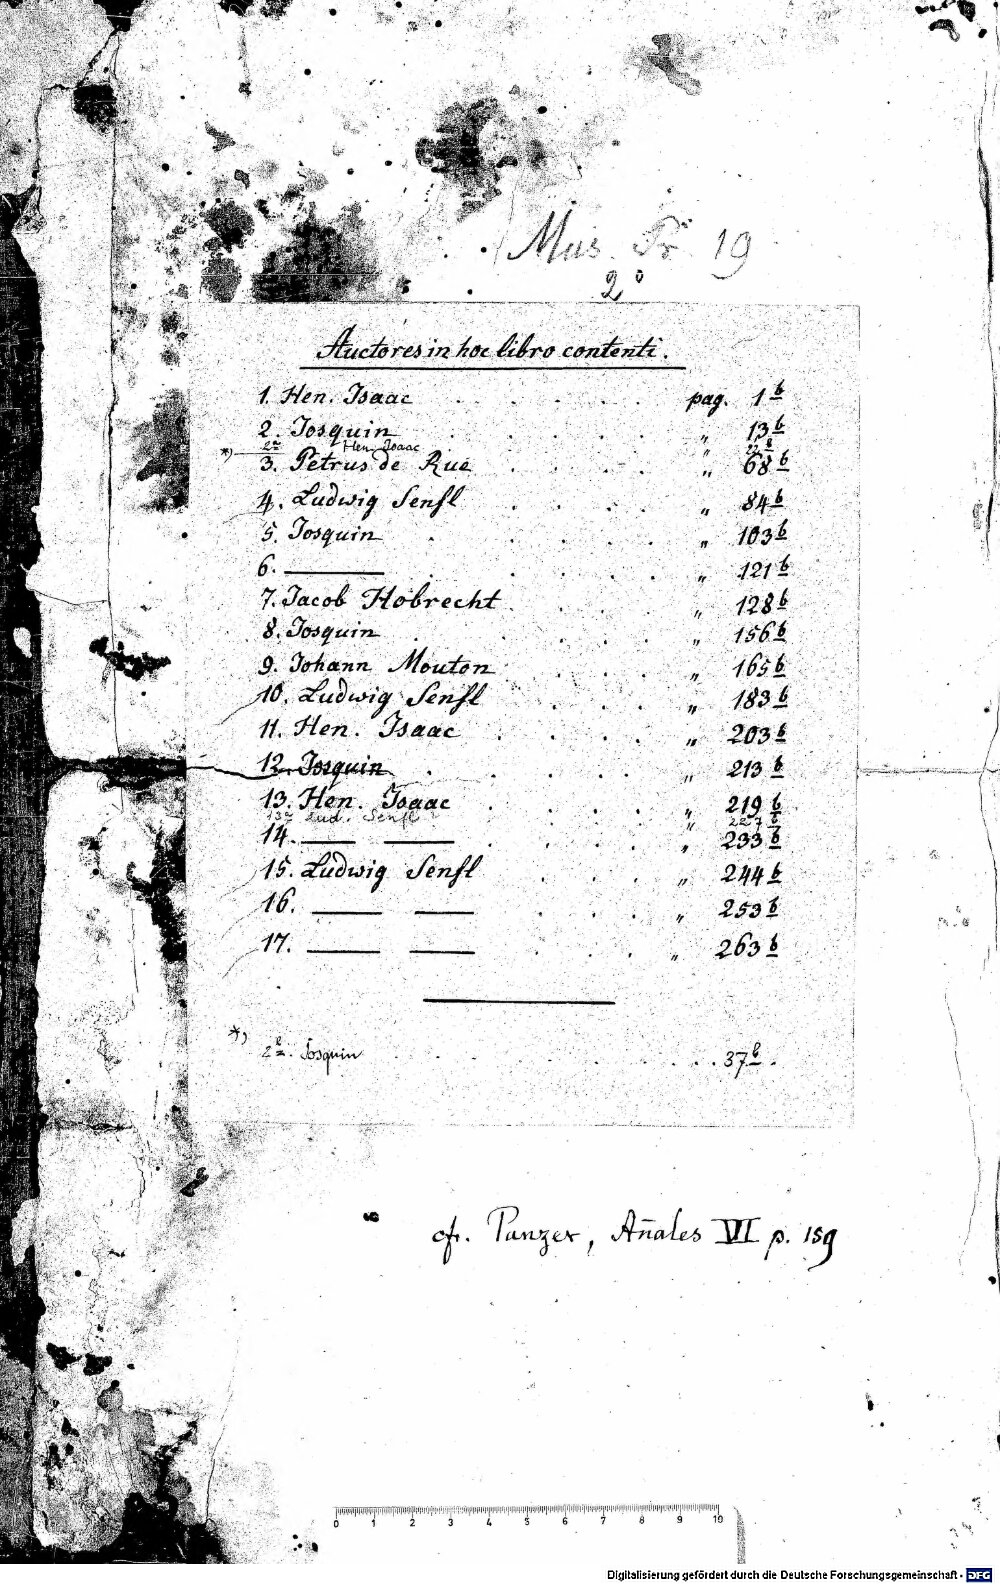 Mus. Pr. 19
2°
Auctores in hoc libro contenti.
1. Hen. Isaac . . . . . pag. 1 b
2. Josquin . . . . . „ 13 b
*) 2a Hen. Isaac „ 22 b
3. Petrus de Rue . . . . „ 68 b
4. Ludwig Senfl . . . . „ 84 b
5. Josquin . . . . . „ 103 b
6. ——— . . . . . „ 121 b
7. Jacob Hobrecht . . . „ 128 b
8. Josquin . . . . . „ 156 b
9. Johann Mouton . . . „ 165 b
10. Ludwig Senfl . . . „ 183 b
11. Hen. Isaac . . . . „ 203 b
12. Josquin . . . . „ 213 b
13. Hen. Isaac . . . . „ 219 b
13a Lud. Senfl „ 227 b
14. —— —— . . . . „ 233 b
15. Ludwig Senfl . . . „ 244 b
16. —— —— . . . „ 253 b
17. —— —— . . . „ 263 b
*)
2b. Josquin . . . . . . . 37 b.
cfr. Panzer, Añales VI p. 159
0 1 2 3 4 5 6 7 8 9 10
Digitalisierung gefördert durch die Deutsche Forschungsgemeinschaft - DFG